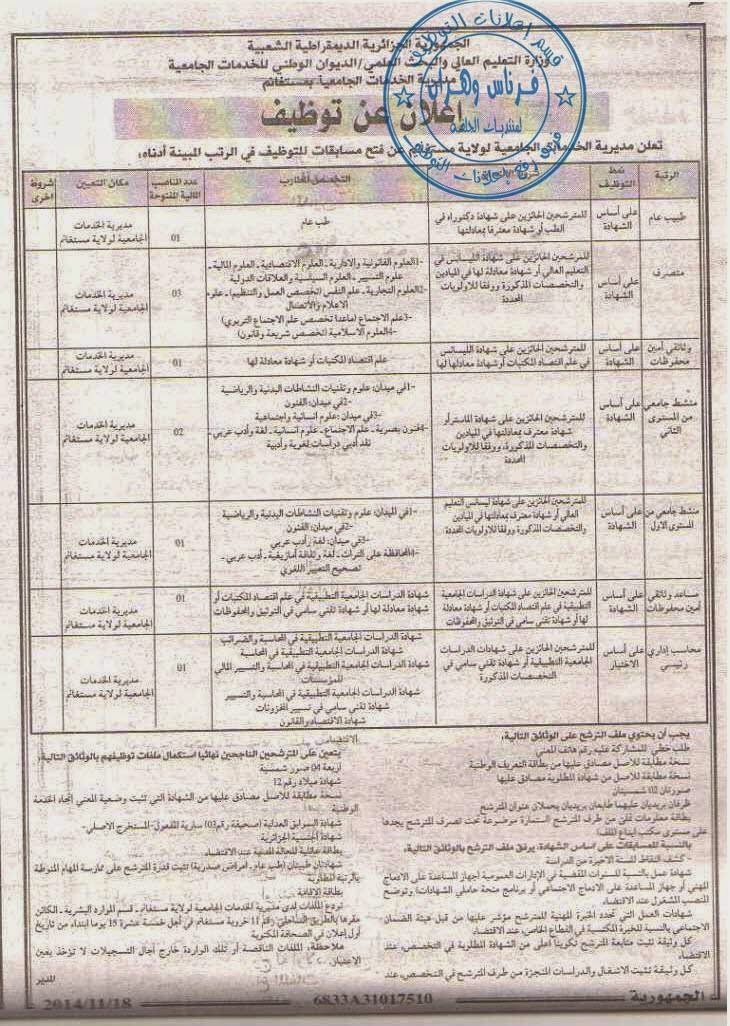 الجمهورية الجزائرية الديمقراطية الشعبية
وزارة التعليم العالي والبحث العلمي/الديوان الوطني للخدمات الجامعية
مديرية الخدمات الجامعية بمستغانم
إعلان عن توظيف
قسم اعلانات التوظيف
فرناس وهران
تعلن مديرية الخدمات الجامعية لولاية مستغانم عن فتح مسابقات للتوظيف في الرتب المبينة أدناه:
الرتبة
نمط التوظيف
التخصص المطلوب
عدد المناصب المالية المفتوحة
مكان التعيين
شروط اخرى
طبيب عام
على أساس الشهادة
للمترشحين الحائزين على شهادة دكتوراه في
الطب أو شهادة معترفا بمعادلتها
طب عام
01
مديرية الخدمات
الجامعية لولاية مستغانم
متصرف
على أساس الشهادة
للمترشحين الحائزين على شهادة الليسانس في
التعليم العالي أو شهادة معادلة لها في الميادين
والتخصصات المذكورة ووفقا للاولويات
المحددة
1-العلوم القانونية والادارية ـ العلوم الاقتصادية ـ العلوم المالية ـ
علوم التسيير ـ العلوم السياسية والعلاقات الدولية
2-العلوم التجارية ـ علم النفس (تخصص العمل والتنظيم) ـ علوم
الاعلام والاتصال
3-علم الاجتماع (ماعدا تخصص علم الاجتماع التربوي)
4-العلوم الاسلامية (تخصص شريعة وقانون)
03
مديرية الخدمات
الجامعية لولاية مستغانم
وثائقي أمين
محفوظات
على أساس
الشهادة
للمترشحين الحائزين على شهادة الليسانس
في علم اقتصاد المكتبات أو شهادة معادلة لها
علم اقتصاد المكتبات أو شهادة معادلة لها
01
مديرية الخدمات
الجامعية لولاية مستغانم
منشط جامعي
من المستوى
الثاني
على أساس
الشهادة
للمترشحين الحائزين على شهادة الماستر أو
شهادة معترف بمعادلتها في الميادين
والتخصصات المذكورة، ووفقا للاولويات
المحددة
1-في ميدان: علوم وتقنيات النشاطات البدنية والرياضية
2-في ميدان: الفنون
3-في ميدان: علوم انسانية واجتماعية
4-فنون بصرية ـ علم الاجتماع ـ علوم انسانية ـ لغة وأدب عربي ـ
نقد أدبي دراسات لغوية وأدبية
02
مديرية الخدمات
الجامعية لولاية مستغانم
منشط جامعي من
المستوى الاول
على أساس
الشهادة
للمترشحين الحائزين على شهادة ليسانس التعليم
العالي أو شهادة معترف بمعادلتها في الميادين
والتخصصات المذكورة ووفقا للاولويات المحددة
1-في الميدان: علوم وتقنيات النشاطات البدنية والرياضية
2-في ميدان: الفنون
3-في ميدان: لغة وأدب عربي
4-المحافظة على التراث ـ لغة وثقافة أمازيغية ـ أدب عربي ـ
تصحيح التعبير اللغوي
01
مديرية الخدمات
الجامعية لولاية مستغانم
مساعد وثائقي
أمين محفوظات
على أساس
الشهادة
للمترشحين الحائزين على شهادة الدراسات الجامعية
التطبيقية في علم اقتصاد المكتبات أو شهادة معادلة
لها أو شهادة تقني سامي في التوثيق والمحفوظات
شهادة الدراسات الجامعية التطبيقية في علم اقتصاد المكتبات أو
شهادة معادلة لها أو شهادة تقني سامي في التوثيق والمحفوظات
01
مديرية الخدمات
الجامعية لولاية مستغانم
محاسب إداري
رئيسي
على أساس
الاختبار
للمترشحين الحائزين على شهادات الدراسات
الجامعية التطبيقية أو شهادة تقني سامي في
التخصصات المذكورة
شهادة الدراسات الجامعية التطبيقية في المحاسبة والضرائب
شهادة الدراسات الجامعية التطبيقية في المحاسبة
شهادة الدراسات الجامعية التطبيقية في المحاسبة والتسيير المالي
للمؤسسات
شهادة الدراسات الجامعية التطبيقية في المحاسبة والتسيير
شهادة تقني سامي في تسيير المخزونات
شهادة الاقتصاد والقانون
01
مديرية الخدمات
الجامعية لولاية مستغانم
يجب أن يحتوي ملف الترشح على الوثائق التالية:
طلب خطي للمشاركة عليه رقم هاتف المعني
نسخة مطابقة للأصل مصادق عليها من بطاقة التعريف الوطنية
نسخة مطابقة للأصل من شهادة المطلوبة مصادق عليها
صورتان 02 شمسيتان
ظرفان بريديان عليهما طابعان بريديان يحملان عنوان المترشح
بطاقة معلومات تملئ من طرف المترشح استمارة موضوعة تحت تصرف المترشح يجدها
على مستوى مكتب إيداع الملف)
بالنسبة للمسابقات على أساس الشهادة، يرفق ملف الترشح بالوثائق التالية:
- كشف النقاط للسنة الاخيرة من الدراسة
شهادة عمل بالنسبة للسنوات المقضية في الإدارات العمومية (جهاز المساعدة على الادماج
المهني أو جهاز المساعدة على الادماج الاجتماعي أو برنامج منحة حاملي الشهادات) وتوضح
المنصب المشغول عند الاقتضاء
شهادات العمل التي تحدد الخبرة المهنية للمترشح مؤشر عليها من قبل هيئة الضمان
الاجتماعي بالنسبة للخبرة المكتسبة في القطاع الخاص، عند الاقتضاء
كل وثيقة تثبت متابعة المترشح تكوينا أعلى من الشهادة المطلوبة في التخصص، عند
الاقتضاء
كل وثيقة تثبت الاشغال والدراسات المنجزة من طرف المترشح في التخصص، عند
الاقتضاء.
يتعين على المترشحين الناجحين نهائيا استكمال ملفات توظيفهم بالوثائق التالية:
أربعة 04 صور شمسية
شهادة ميلاد رقم 12
نسخة مطابقة للأصل مصادق عليها من الشهادة التي تثبت وضعية المعني إتجاه الخدمة
الوطنية
شهادة السوابق العدلية (صحيفة رقم 03) سارية المفعول-المستخرج الاصلي-
شهادة الجنسية الجزائرية
بطاقة عائلية للحالة المدنية عند الاقتضاء
شهادتان طبيتان (طب عام ـ أمراض صدرية) تثبت قدرة المترشح على ممارسة المهام المنوطة
بالرتبة المطلوبة
بطاقة الإقامة
تودع الملفات لدى مديرية الخدمات الجامعية لولاية مستغانم ـ قسم الموارد البشرية ـ الكائن
مقرها بالطريق الساحلي رقم 11 خروبة مستغانم في أجل خمسة عشرة 15 يوما ابتداء من تاريخ
أول إعلان في الصحافة المكتوبة
ملاحظة: الملفات الناقصة أو تلك الواردة خارج آجال التسجيلات لا تؤخذ بعين
الاعتبار.
المدير
الجمهورية
6833A31017510
2014/11/18